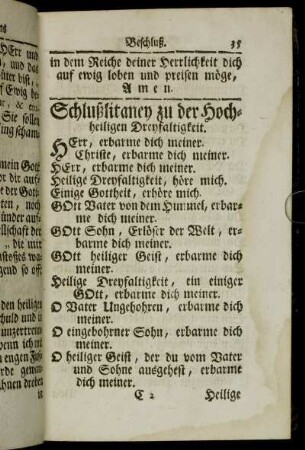 Beschluß. 35
in dem Reiche deiner Herrlichkeit dich
auf ewig loben und preisen möge,
Amen.
Schlußlitaney zu der Hoch-
heiligen Dreyfaltigkeit.
HErr, erbarme dich meiner.
Christe, erbarme dich meiner.
HErr, erbarme dich meiner.
Heilige Dreyfaltigkeit, höre mich.
Einige Gottheit, erhöre mich.
GOtt Vater von dem Himmel, erbar-
me dich meiner.
GOtt Sohn, Erlöser der Welt, er-
barme dich meiner.
GOtt heiliger Geist, erbarme dich
meiner.
Heilige Dreyfaltigkeit, ein einiger
GOtt, erbarme dich meiner.
O Vater Ungebohren, erbarme dich
meiner.
O eingebohrner Sohn, erbarme dich
meiner.
O heiliger Geist, der du vom Vater
und Sohne ausgehest, erbarme
dich meiner.
C 2 Heilige
HErr und
und das
Ewig be
Sie sollen
mein Gott
dir auf-
der Got-
noch
ellschaft der
die mir
gend so off
den heiligen
und in
wenn ich
engen